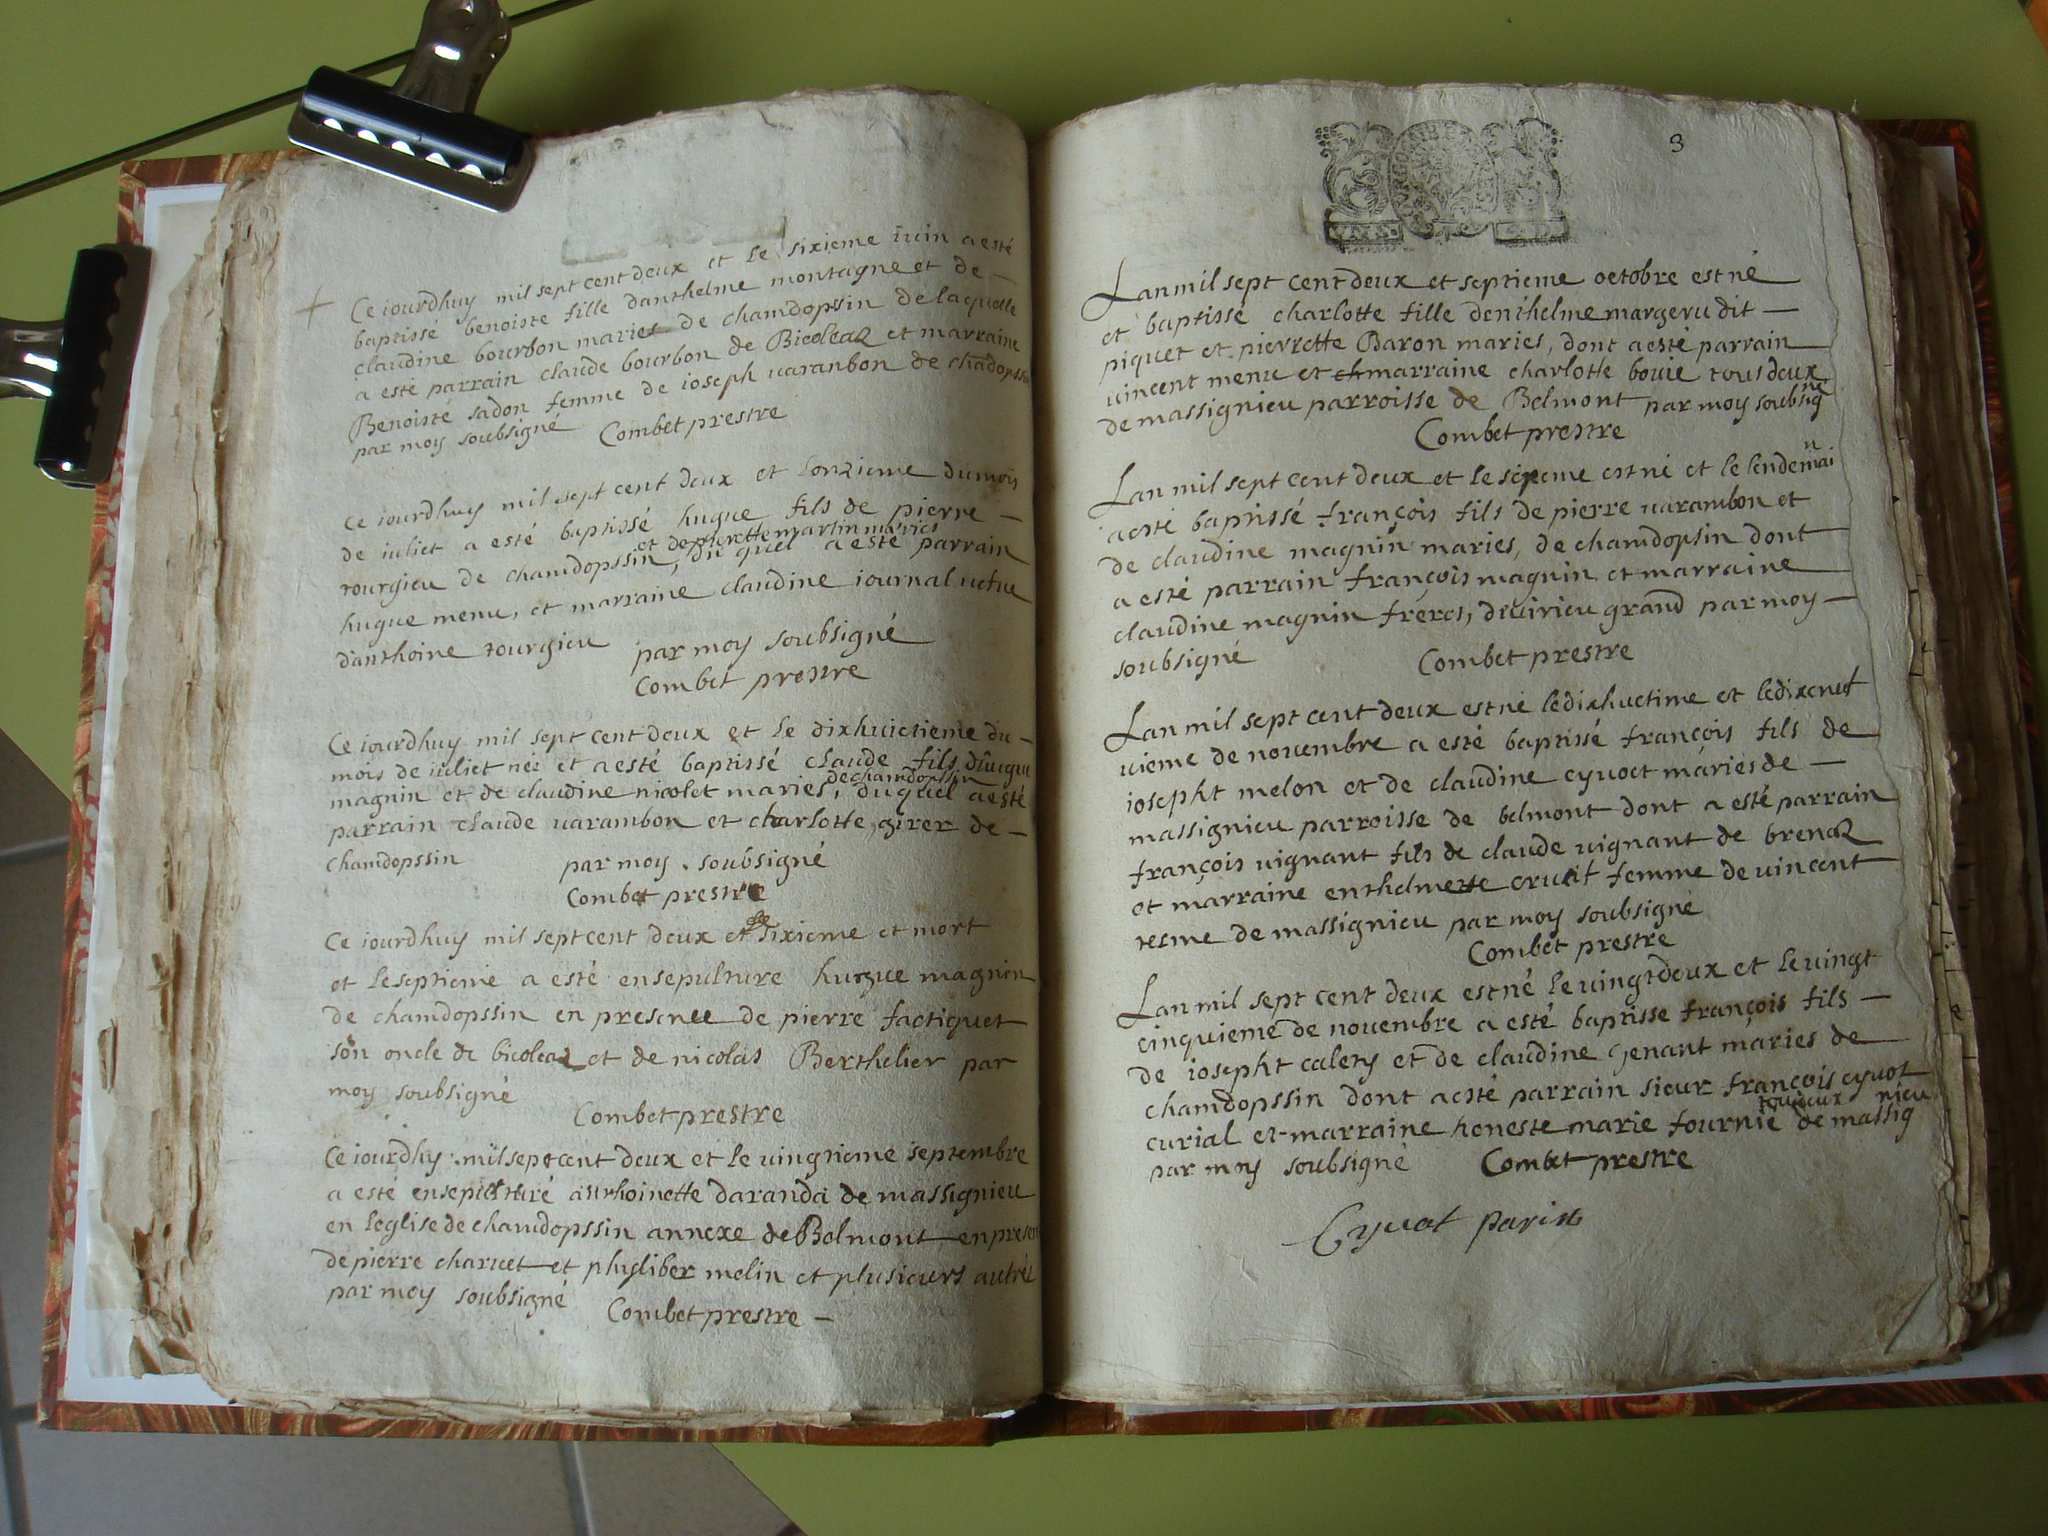 Ce iourdhuy mil sept cent deux et le sixieme iuin a esté
baptissé benoiste fille danthelme montagne et de
claudine bourbon maries de chamdopssin de laquelle
a esté parrain claude bourbon de Bicoleaz et marraine
Benoisté sadon femme de ioseph varanbon de chadopssin
par moy soubsigné Combet prestre
Ce iourdhuy mil sept cent deux et lonzieme du mois
de iuliet a esté baptissé hugue fils de pierre
et de pierrette martin maries
tourgieu de chamdopssin, du quel a esté parrain
hugue menu, et marraine claudine iournal vefue
danthoine tourgieu par moy soubsigné
Combet prestre
Ce iourdhuy mil sept cent deux et le dixhuictieme du
mois de iuliet née et a esté baptissé claude fils dhugue
de chamdopssin
magnin et de claudine nicolet maries, du quel a esté
parrain claude varambon et charlotte girer de
chamdopssin par moy soubsigné
Combet prestre
Ce iourdhuy mil sept cent deux et sixieme et mort
et le septieme a esté ensepulture hugue magnin
de chamdopssin en presence de pierre factiquet
son oncle de bicoleaz et de nicolas Berthelier par
moy soubsigné
Combet prestre
Ce iourdhy mil sept cent deux et le vingtieme septembre
a esté ensepulturé anthoinette daranda de massignieu
en leglise de chamdopssin annexe de Belmont en presen
de pierre charuet et phyliber melin et plusieurs autres
par moy soubsigné Combet prestre
3
Lan mil sept cent deux et septieme octobre est né
et baptissé charlotte fille denthelme margeru dit
piquet et pierrette Baron maries, dont a esté parrain
vincent menu et marraine charlotte bouie tous deux
de massignieu parroisse de Belmont par moy soubsigné
Combet prestre
Lan mil sept cent deux et le est né et le lendemain
a esté baptissé françois fils de pierre varambon et
de claudine magnin maries, de chamdopsin dont
a esté parrain françois magnin et marraine
claudine magnin freres, de virieu grand par moy
soubsigné Combet prestre
Lan mil sept cent deux est né le dixhuetime et le dixenuf
vieme de novembre a esté baptissé françois fils de
iosepht melon et de claudine cyuoct maries de
massignieu parroisse de belmont dont a esté parrain
françois vignant fils de claude vignant de brenaz
et marraine enthelmette cruit femme de vincent
tesme de massignieu par moy soubsigné
Combet prestre
Lan mil sept cent deux est né le vingtdeux et le vingt
cinquieme de novembre a esté baptisse françois fils
de iosepht calery et de claudine genant maries de
chamdopssin dont a esté parrain sieur françois cyuot
curial et marraine honeste marie fournie tousdeux de massignieu
par moy soubsigné Combet prestre
Cyuot parin